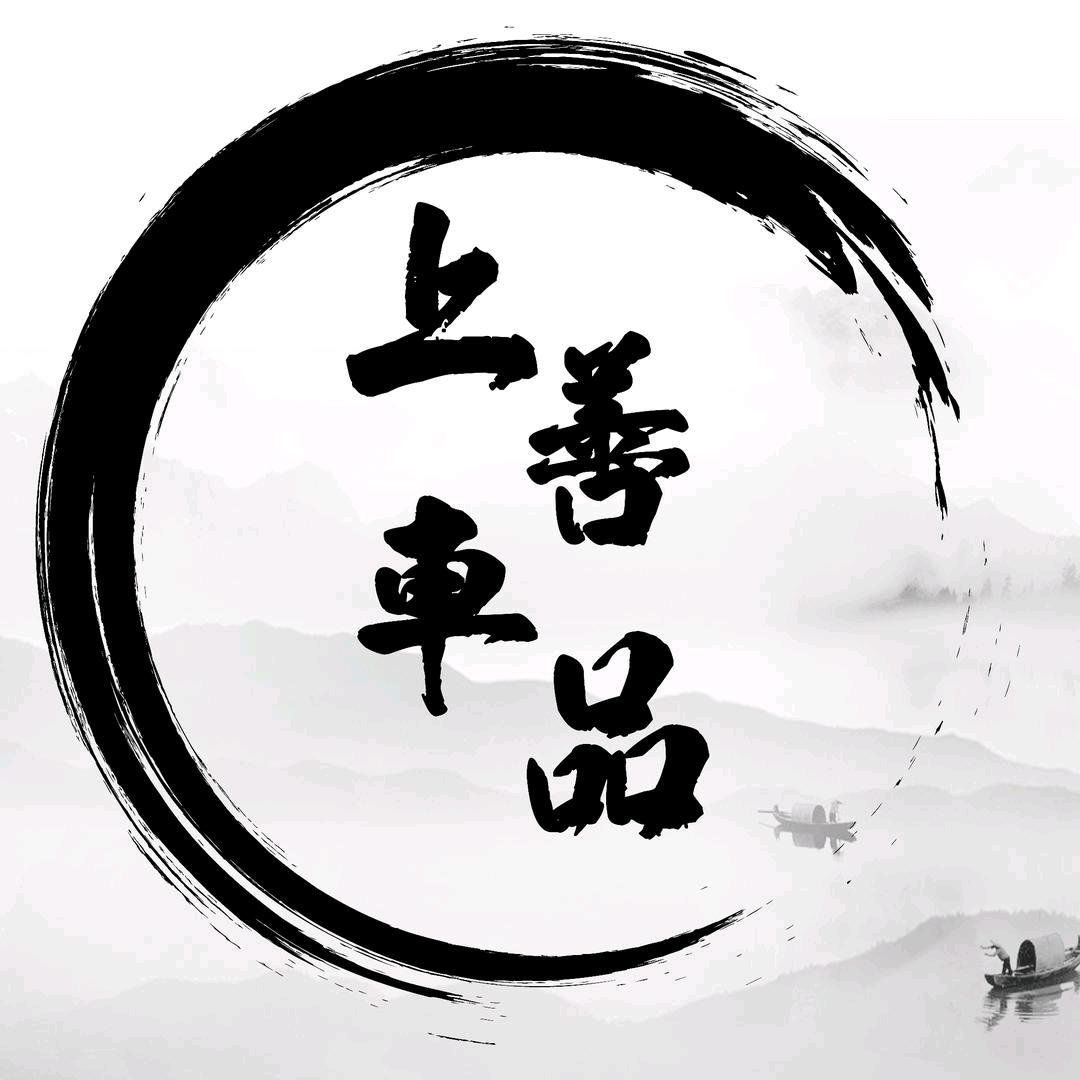 上善車品